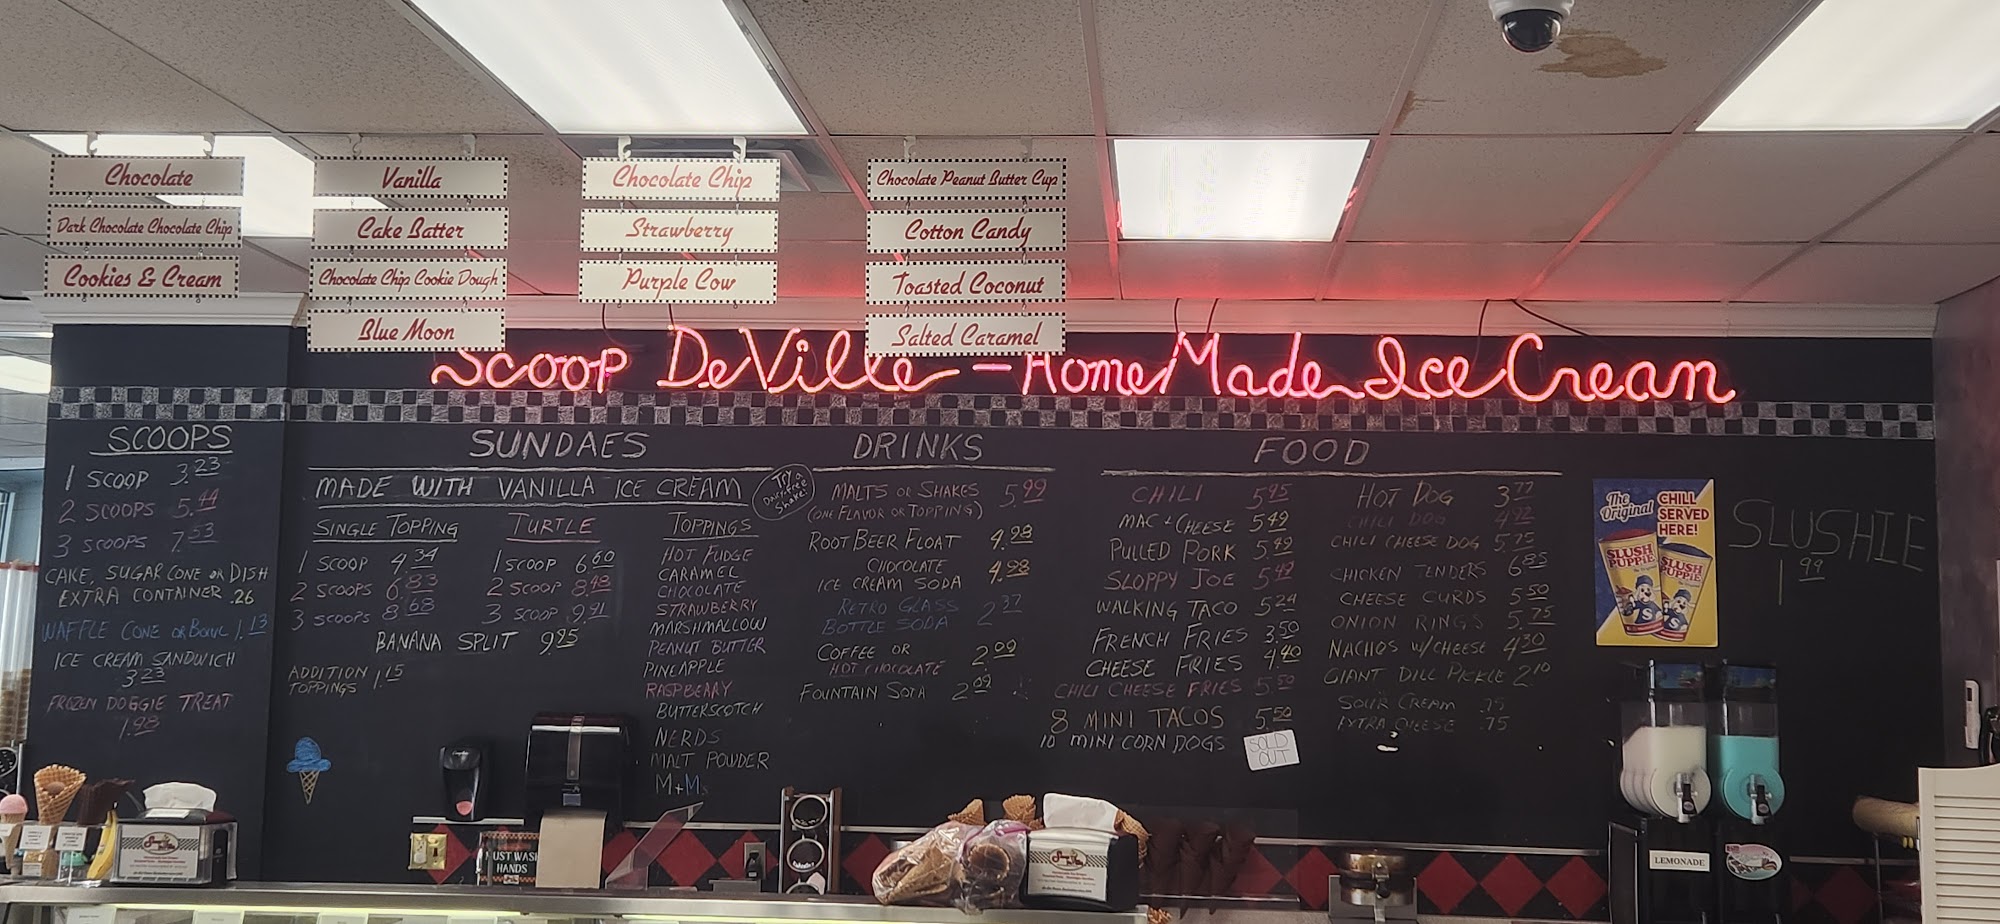 Chocolate
Dark Chocolate Chocolate Chip
Cookies & Cream
Vanilla
Cake Batter
Chocolate Chip Cookie Dough
Blue Moon
Chocolate Chip
Strawberry
Purple Cow
Chocolate Peanut Butter Cup
Cotton Candy
Toasted Coconut
Salted Caramel
Scoop DeVille - HomeMade Ice Cream
SCOOPS
1 SCOOP 3.23
2 SCOOPS 5.44
3 SCOOPS 7.53
CAKE, SUGAR CONE OR DISH
EXTRA CONTAINER .26
WAFFLE CONE OR BOWL 1.13
ICE CREAM SANDWICH
3.23
FROZEN DOGGIE TREAT
1.98
SUNDAES
MADE WITH VANILLA ICE CREAM
SINGLE TOPPING
1 SCOOP 4.34
2 SCOOPS 6.83
3 SCOOPS 8.68
TURTLE
1 SCOOP 6.60
2 SCOOP 8.48
3 SCOOP 9.91
BANANA SPLIT 9.95
ADDITION
TOPPINGS 1.15
TOPPINGS
HOT FUDGE
CARAMEL
CHOCOLATE
STRAWBERRY
MARSHMALLOW
PEANUT BUTTER
PINEAPPLE
RASPBERRY
BUTTERSCOTCH
NERDS
MALT POWDER
M+Ms
TRY
Dairy-free
Shake!
DRINKS
MALTS OR SHAKES 5.99
(ONE FLAVOR OR TOPPING)
ROOT BEER FLOAT 4.98
CHOCOLATE
ICE CREAM SODA 4.98
RETRO GLASS
BOTTLE SODA 2.37
COFFEE OR
HOT CHOCOLATE 2.09
FOUNTAIN SODA 2.09
FOOD
CHILI 5.95
MAC + CHEESE 5.49
PULLED PORK 5.49
SLOPPY JOE 5.49
WALKING TACO 5.24
FRENCH FRIES 3.50
CHEESE FRIES 4.40
CHILI CHEESE FRIES 5.50
8 MINI TACOS 5.50
10 MINI CORN DOGS
SOLD
OUT
HOT DOG 3.77
CHILI DOG 4.92
CHILI CHEESE DOG 5.75
CHICKEN TENDERS 6.85
CHEESE CURDS 5.50
ONION RINGS 5.75
NACHOS W/CHEESE 4.30
GIANT DILL PICKLE 2.10
SOUR CREAM .75
EXTRA CHEESE .75
The
Original
CHILL
SERVED
HERE!
SLUSH
PUPPiE
SLUSH
PUPPiE
SLUSHIE
1.99
MUST WASH
HANDS
LEMONADE